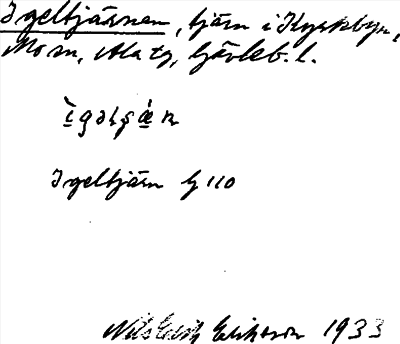 Igeltjärnen, tjärn i Kyrkbyn,
Mo sn, Ala tg, Gävleb. l.
ìgəlʂǽn
Igeltjärn G 110
Nils Erik Eriksson 1933